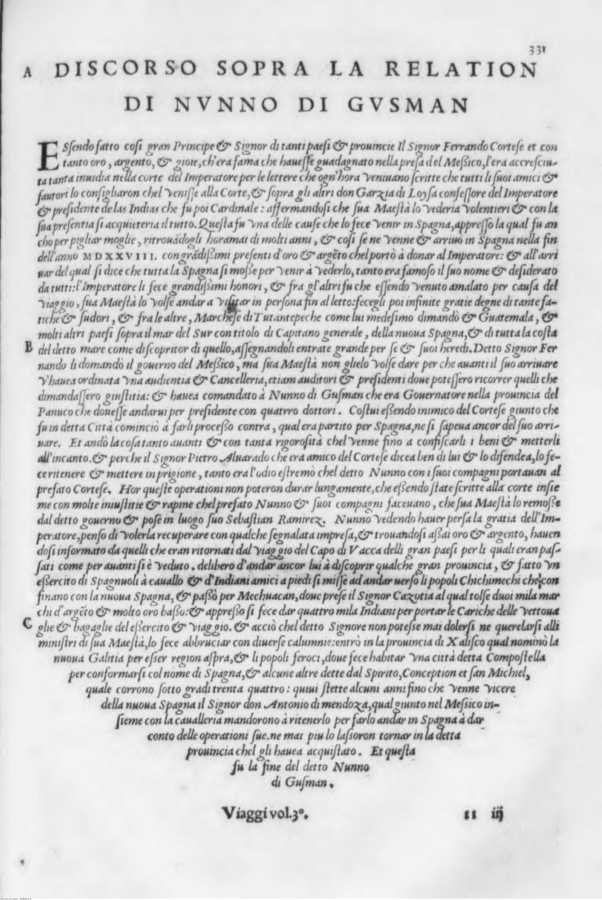 331
A DISCORSO SOPRA LA RELATION
DI NVNNO DI GVSMAN
ESsendo fatto cosi gran Principe & Signor di tanti paesi & prouincie Il Signor Ferrando Cortese et con
tanto oro, argento, & gioie, ch'era fama che hauesse guadagnato nella presa del Messico, s'era accresciu
ta tanta inuidia nella corte del Imperatore per le lettere che ogn'hora veniuano scritte che tutti li suoi amici &
fautori lo consigliaron chel venisse alla Corte, & sopra gli altri don Garzia di Loysa confessore del Imperatore
& presidente de las Indias che fu poi Cardinale: affermandosi che sua Maestà lo vederia volentieri & con la
sua presentia si acquieteria il tutto. Questa fu vna delle cause che lo fece venir in Spagna, appresso la qual fu an
cho per pigliar moglie, ritrouãdogli horamai di molti anni, & cosi se ne venne & arriuo in Spagna nella fin
dell'anno MDXXVIII. con grãdissimi presenti d'oro & argẽto chel portò à donar al Imperatore: & all'arri
uar del qual si dice che tutta la Spagna si mosse per venir à vederlo, tanto era famoso il suo nome & desiderato
da tutti: l'Imperatore li fece grandissimi honori, & fra gl'altri fu che essendo venuto amalato per causa del
viaggio, sua Maestà lo volse andar a visitar in persona fin al letto: fecegli poi infinite gratie degne di tante fa-
tiche & sudori, & fra le altre, Marchese di Tutantepeche come lui medesimo dimandò & Guatemala, &
molti altri paesi sopra il mar del Sur con titolo di Capitano generale, della nuoua Spagna, & di tutta la costa
B del detto mare come discopritor di quello, assegnandoli entrate grande per se & suoi heredi. Detto Signor Fer
nando li domandò il gouerno del Messico, ma sua Maestà non glielo volse dare per che auanti il suo arriuare
v'hauea ordinata vna audientia & Cancelleria, etiam auditori & presidenti doue potessero ricorrer quelli che
dimandassero giustitia: & hauea comandato à Nunno di Gusman che era Gouernatore nella prouincia del
Panuco che douesse andarui per presidente con quattro dottori. Costui essendo inimico del Cortese giunto che
fu in detta Città cominciò à farli processo contra, qual era partito per Spagna, ne si sapeua ancor del suo arri-
uare. Et andò la cosa tanto auanti & con tanta rigorosità chel venne fino a confiscarli i beni & metterli
all'incanto. & perche il Signor Pietro Aluarado che era amico del Cortese dicea ben di lui & lo difendea, lo fe-
ce ritenere & mettere in prigione, tanto era l'odio estremo chel detto Nunno con i suoi compagni portauan al
prefato Cortese. Hor queste operationi non poteron durar lungamente, che essendo state scritte alla corte insie
me con molte iniustitie & rapine chel prefato Nunno & suoi compagni faceuano, che sua Maestà lo remosse
dal detto gouerno & pose in luogo suo Sebastian Ramirez. Nunno vedendo hauer persa la gratia dell'Im-
peratore, penso di volerla recuperare con qualche segnalata impresa, & trouandosi assai oro & argento, hauen
dosi informato da quelli che eran ritornati dal viaggio del Capo di Vacca delli gran paesi per li quali eran pas-
sati come per auanti si è veduto. delibero d'andar ancor lui à discoprir qualche gran prouincia, & fatto vn
essercito di Spagnuoli à cauallo & d'Indiani amici a piedi si misse ad andar verso li popoli Chichimechi che con
finano con la nuoua Spagna, & passò per Mechuacan, doue prese il Signor Cazotia al qual tolse duoi mila mar
chi d'argẽto & molto oro basso: & appresso si fece dar quattro mila Indiani per portar le Cariche delle vettoua
C glie & bagaglie del essercito & viaggio. & acciò chel detto Signore non potesse mai dolersi ne querelarsi alli
ministri di sua Maestà, lo fece abbruciar con diuerse calumnie: entrò in la prouincia di Xalisco qual nominò la
nuoua Galitia per esser region aspra, & li popoli feroci, doue fece habitar vna città detta Compostella
per conformarsi col nome di Spagna, & alcune altre dette dal Spirito, Conception et san Michiel,
quale corrono sotto gradi trenta quattro: quiui stette alcuni anni fino che venne vicere
della nuoua Spagna il Signor don Antonio di mendoza, qual giunto nel Messico in-
sieme con la caualleria mandorono à ritenerlo per farlo andar in Spagna à dar
conto delle operationi sue. ne mai piu lo lassoron tornar in la detta
prouincia chel gli hauea acquistato. Et questa
fu la fine del detto Nunno
di Gusman.
Viaggi vol. 3º. ll iij